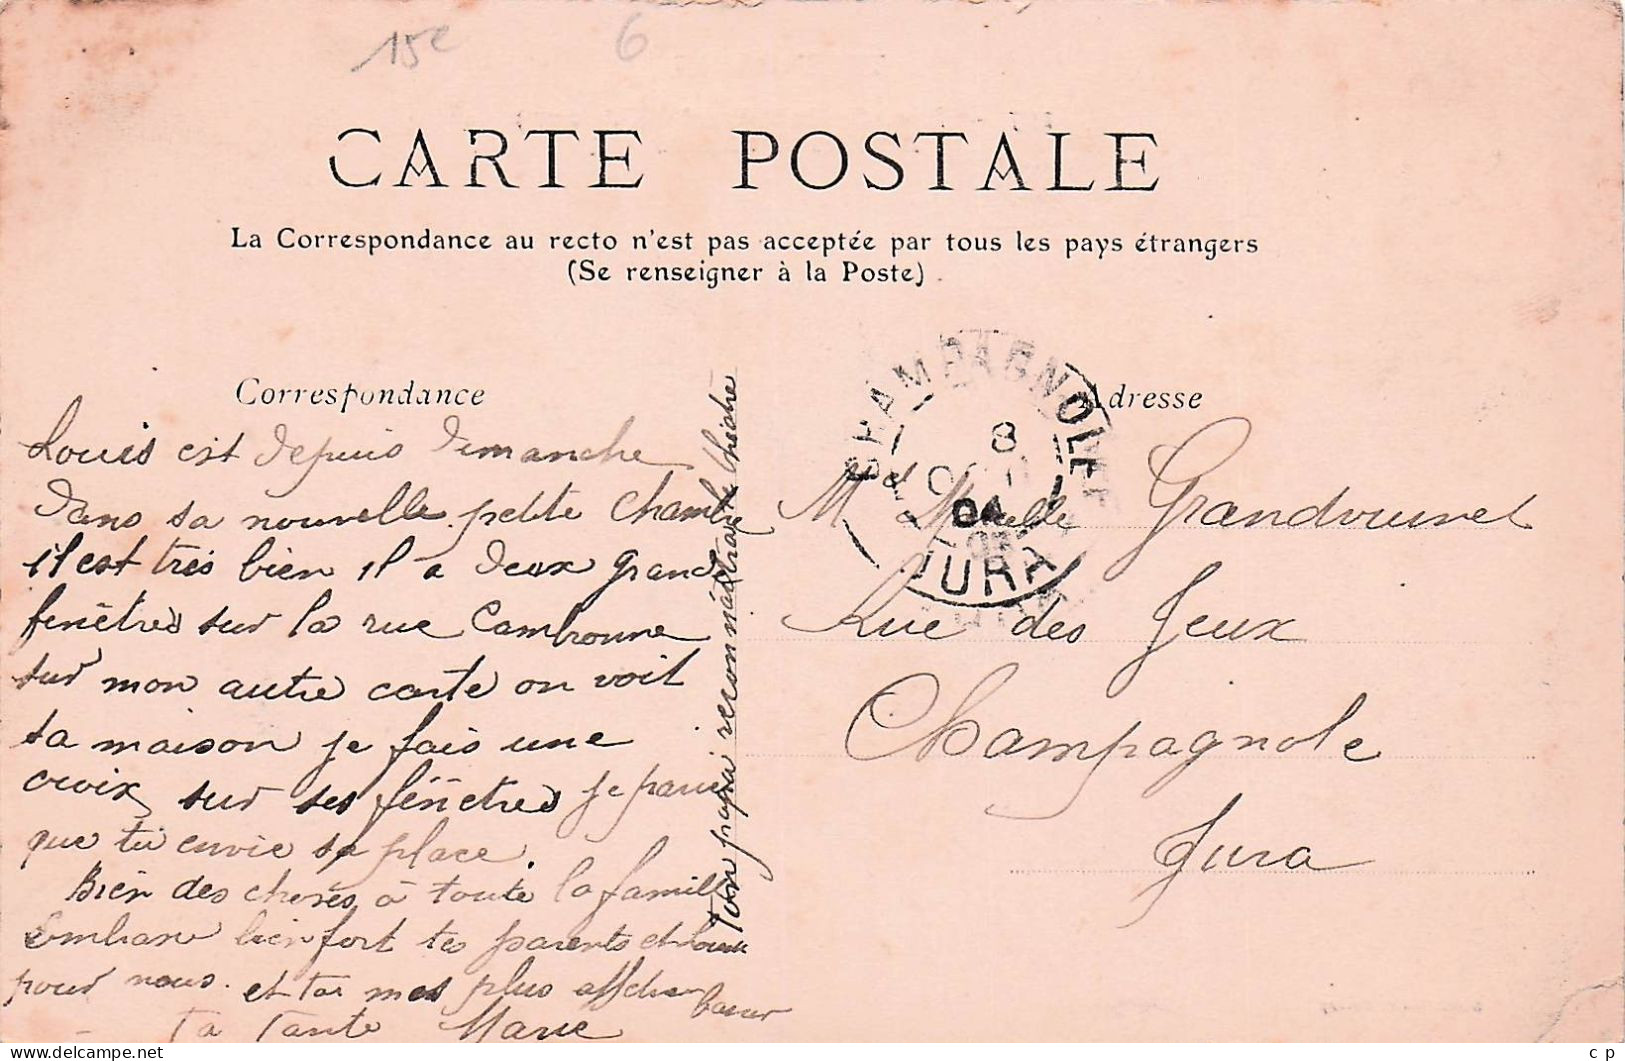 15e 6
CARTE POSTALE
La Correspondance au recto n'est pas acceptée par tous les pays étrangers
(Se renseigner à la Poste)
Correspondance
Adresse
Louis est depuis dimanche
dans sa nouvelle petite chambre
il est très bien il a deux grande
fenêtres sur la rue Cambronne
sur mon autre carte on voit
sa maison je fais une
croix sur ses fénêtres je parie
que tu envie sa place.
Bien des choses à toute la famille
Embrasse bien fort tes parents et
pour nous. et toi mes plus affectueux
baiser
Ta Tante Marie
Ton papa reconnaîtra le théâtre
CHAMPAGNOLE
8
04
JURA
M et Grandvuinet
Rue des Jeux
Champagnole
Jura
c p